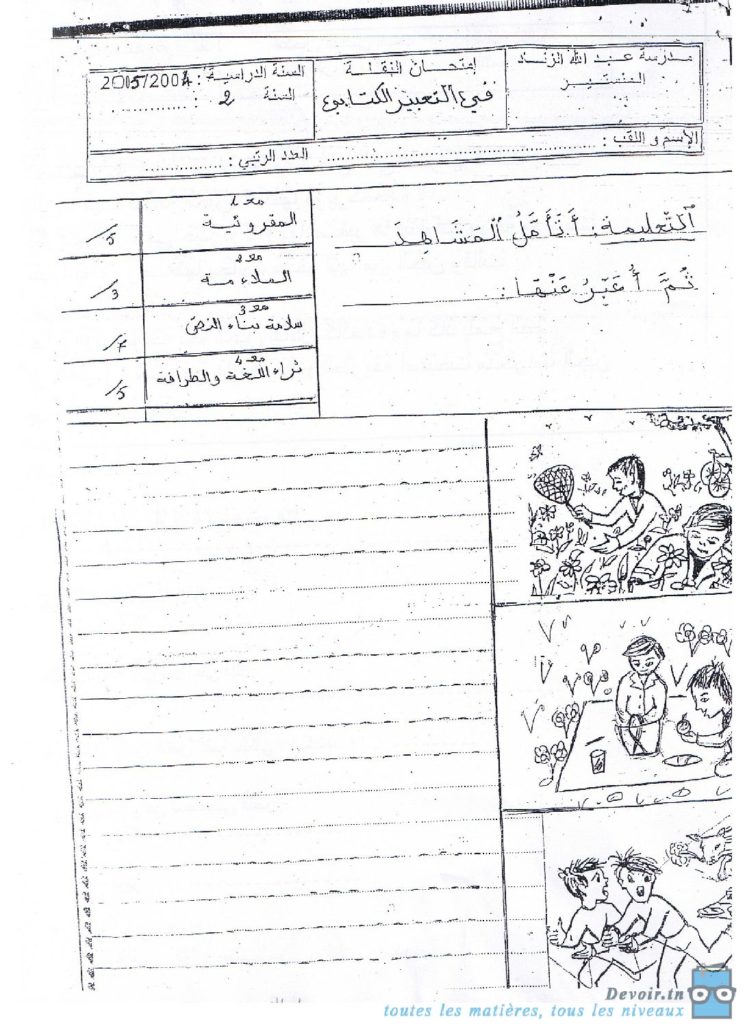 مدرسة عبد الله الزند
المنستير
إمتحان النقلة
في التعبير الكتابي
السنة الدراسية : 2005/2004
السنة : 2
الإسم و اللقب :
العدد الرتبي :
التعليمة : أَتَأَمَّلُ المَشَاهِدَ
ثُمَّ أُعَبِّرُ عَنْهَا :
معـ 1
المقروئية
/5
معـ 2
الملاءمة
/3
معـ 3
سلامة بناء النص
/7
معـ 4
ثراء اللغة والطرافة
/5
Devoir.tn
toutes les matières, tous les niveaux